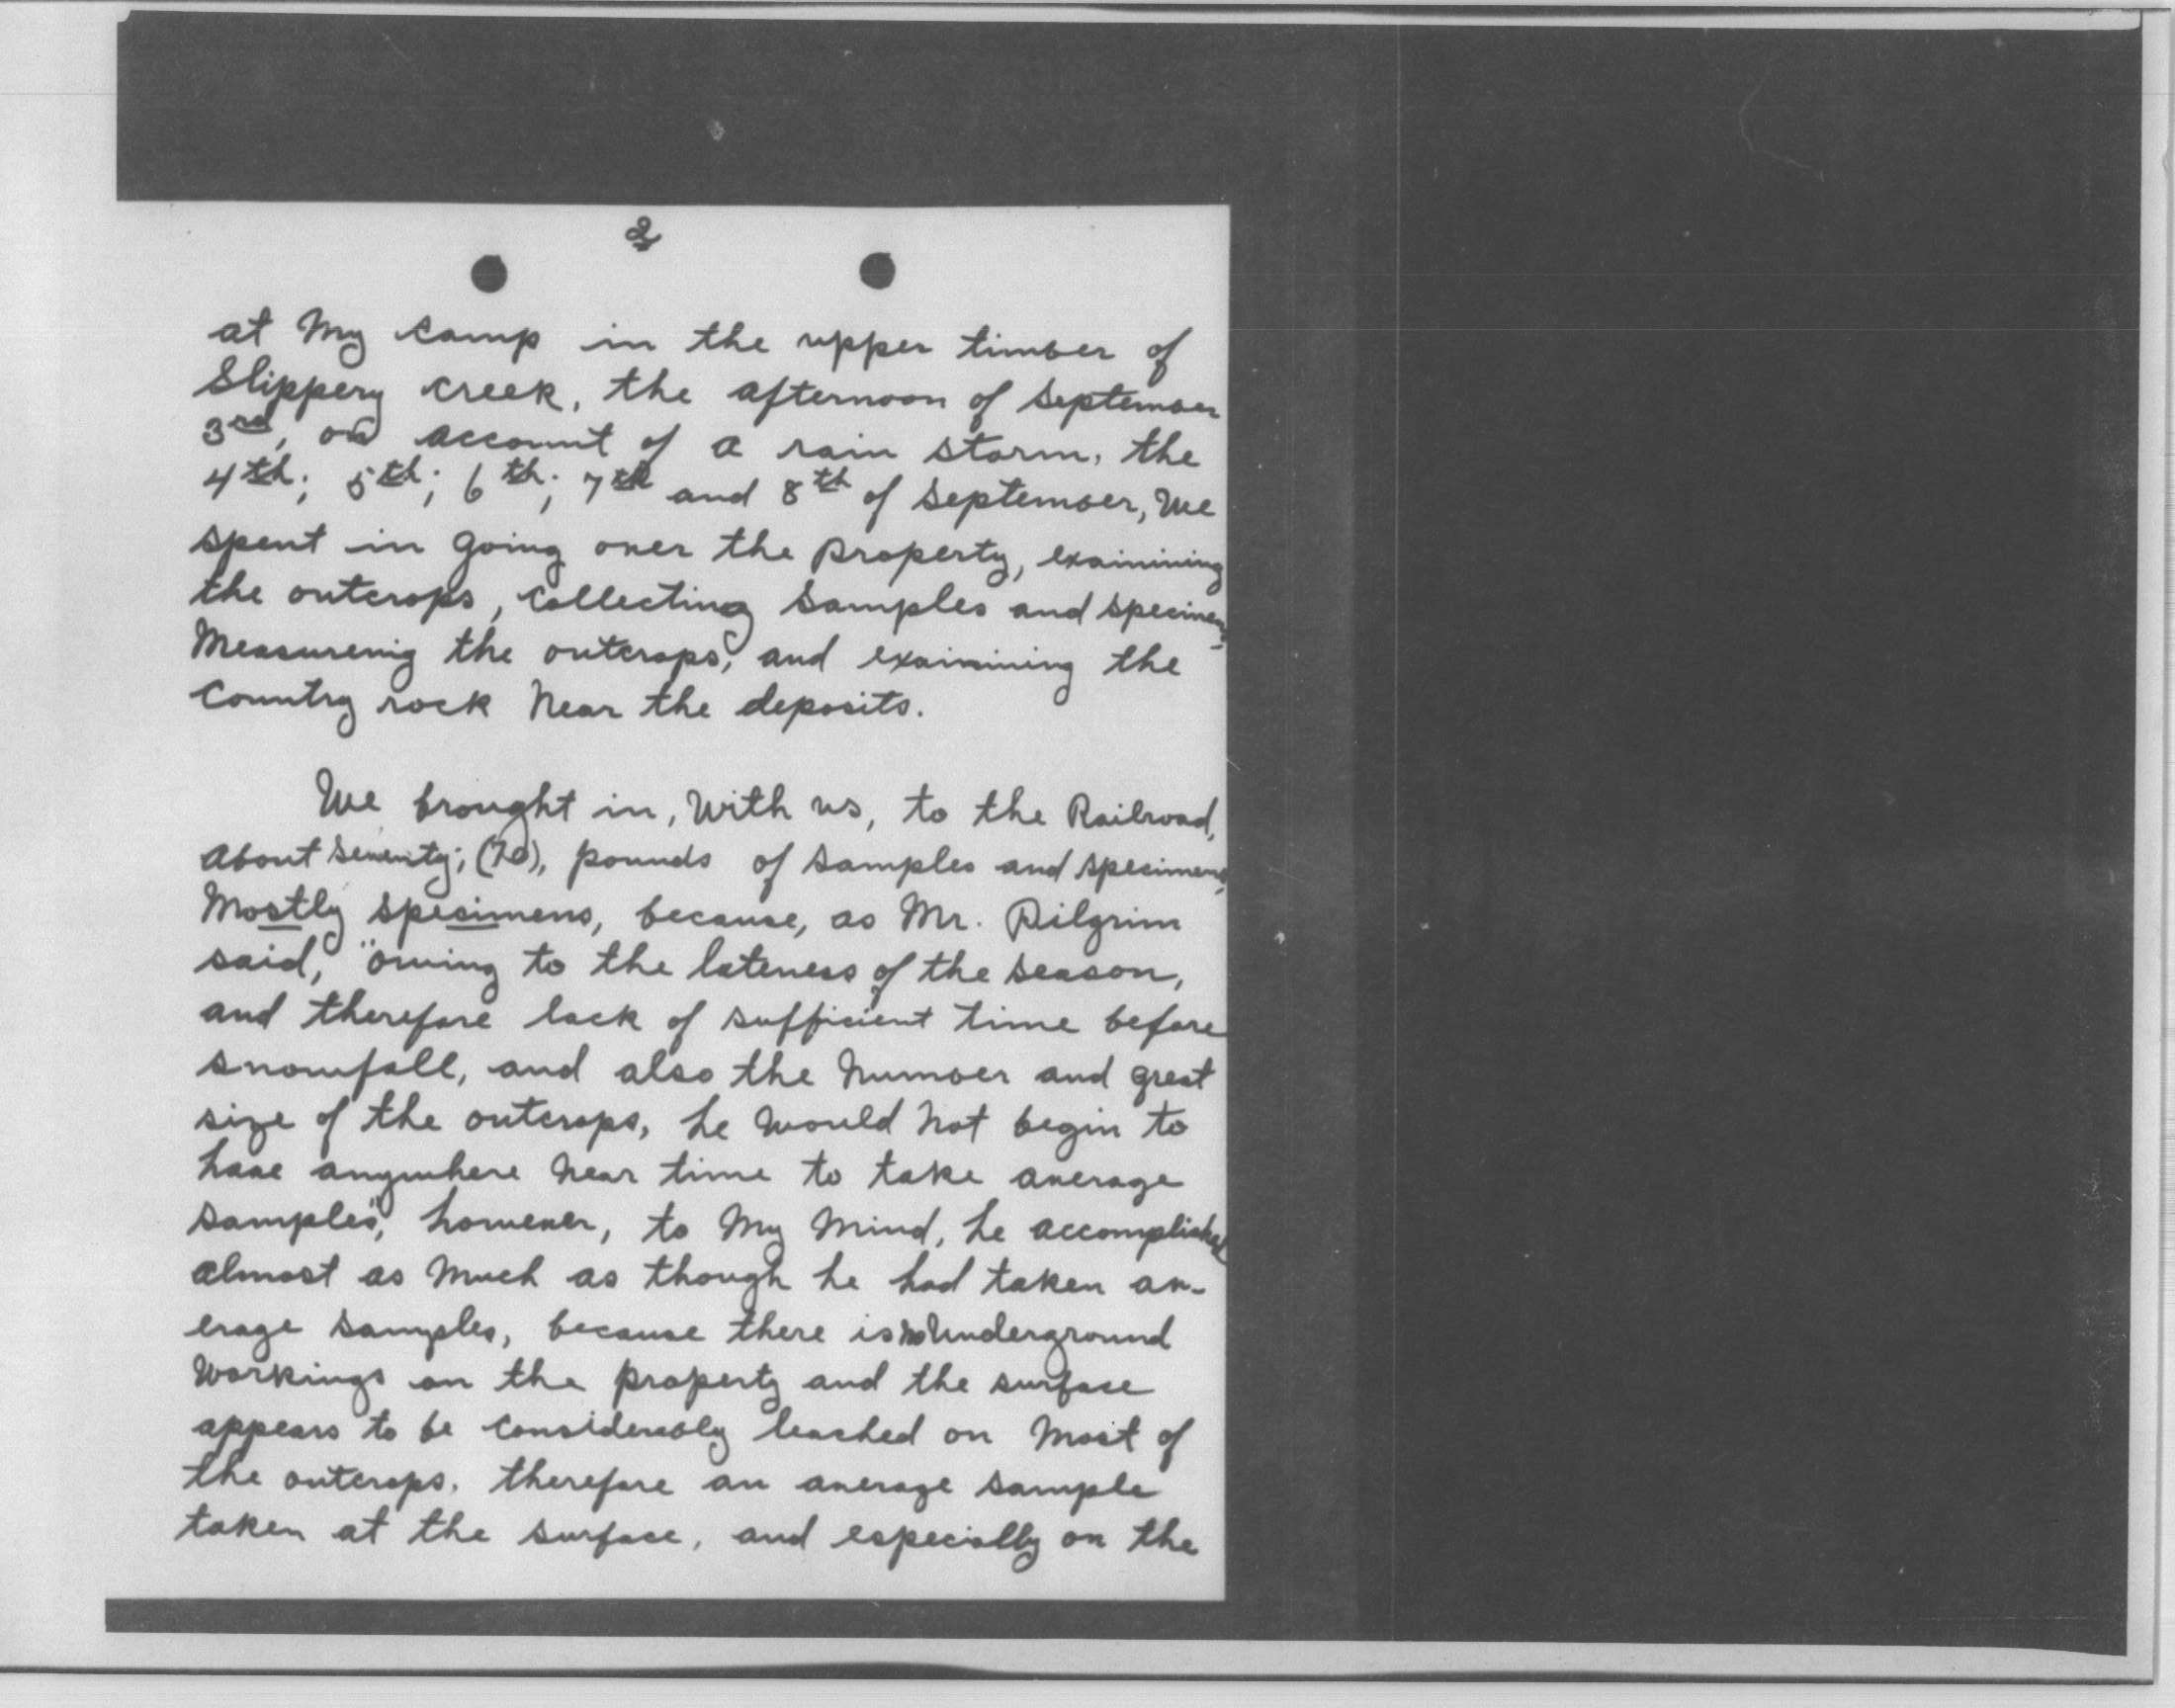 2
at my camp in the upper timber of
Slippery creek, the afternoon of September
3rd, on account of a rain storm, the
4th; 5th; 6th; 7th and 8th of September, we
spent in going over the property, examining
the outcrops, collecting samples and specimens
Measurenig the outcrops, and examining the
Country rock near the deposits.
We brought in, with us, to the Railroad,
About seventy; (70), pounds of samples and specimens,
Mostly specimens, because, as Mr. Pilgrim
said, "owing to the lateness of the season,
and therefore lack of sufficient time before
snowfall, and also the number and great
size of the outcrops, he would not begin to
have anywhere near time to take average
samples", however, to my mind, he accomplished
almost as much as though he had taken av-
erage samples, because there is no underground
workings on the property and the surface
appears to be considerably leached on most of
the outcrops. therefore an average sample
taken at the surface, and especially on the